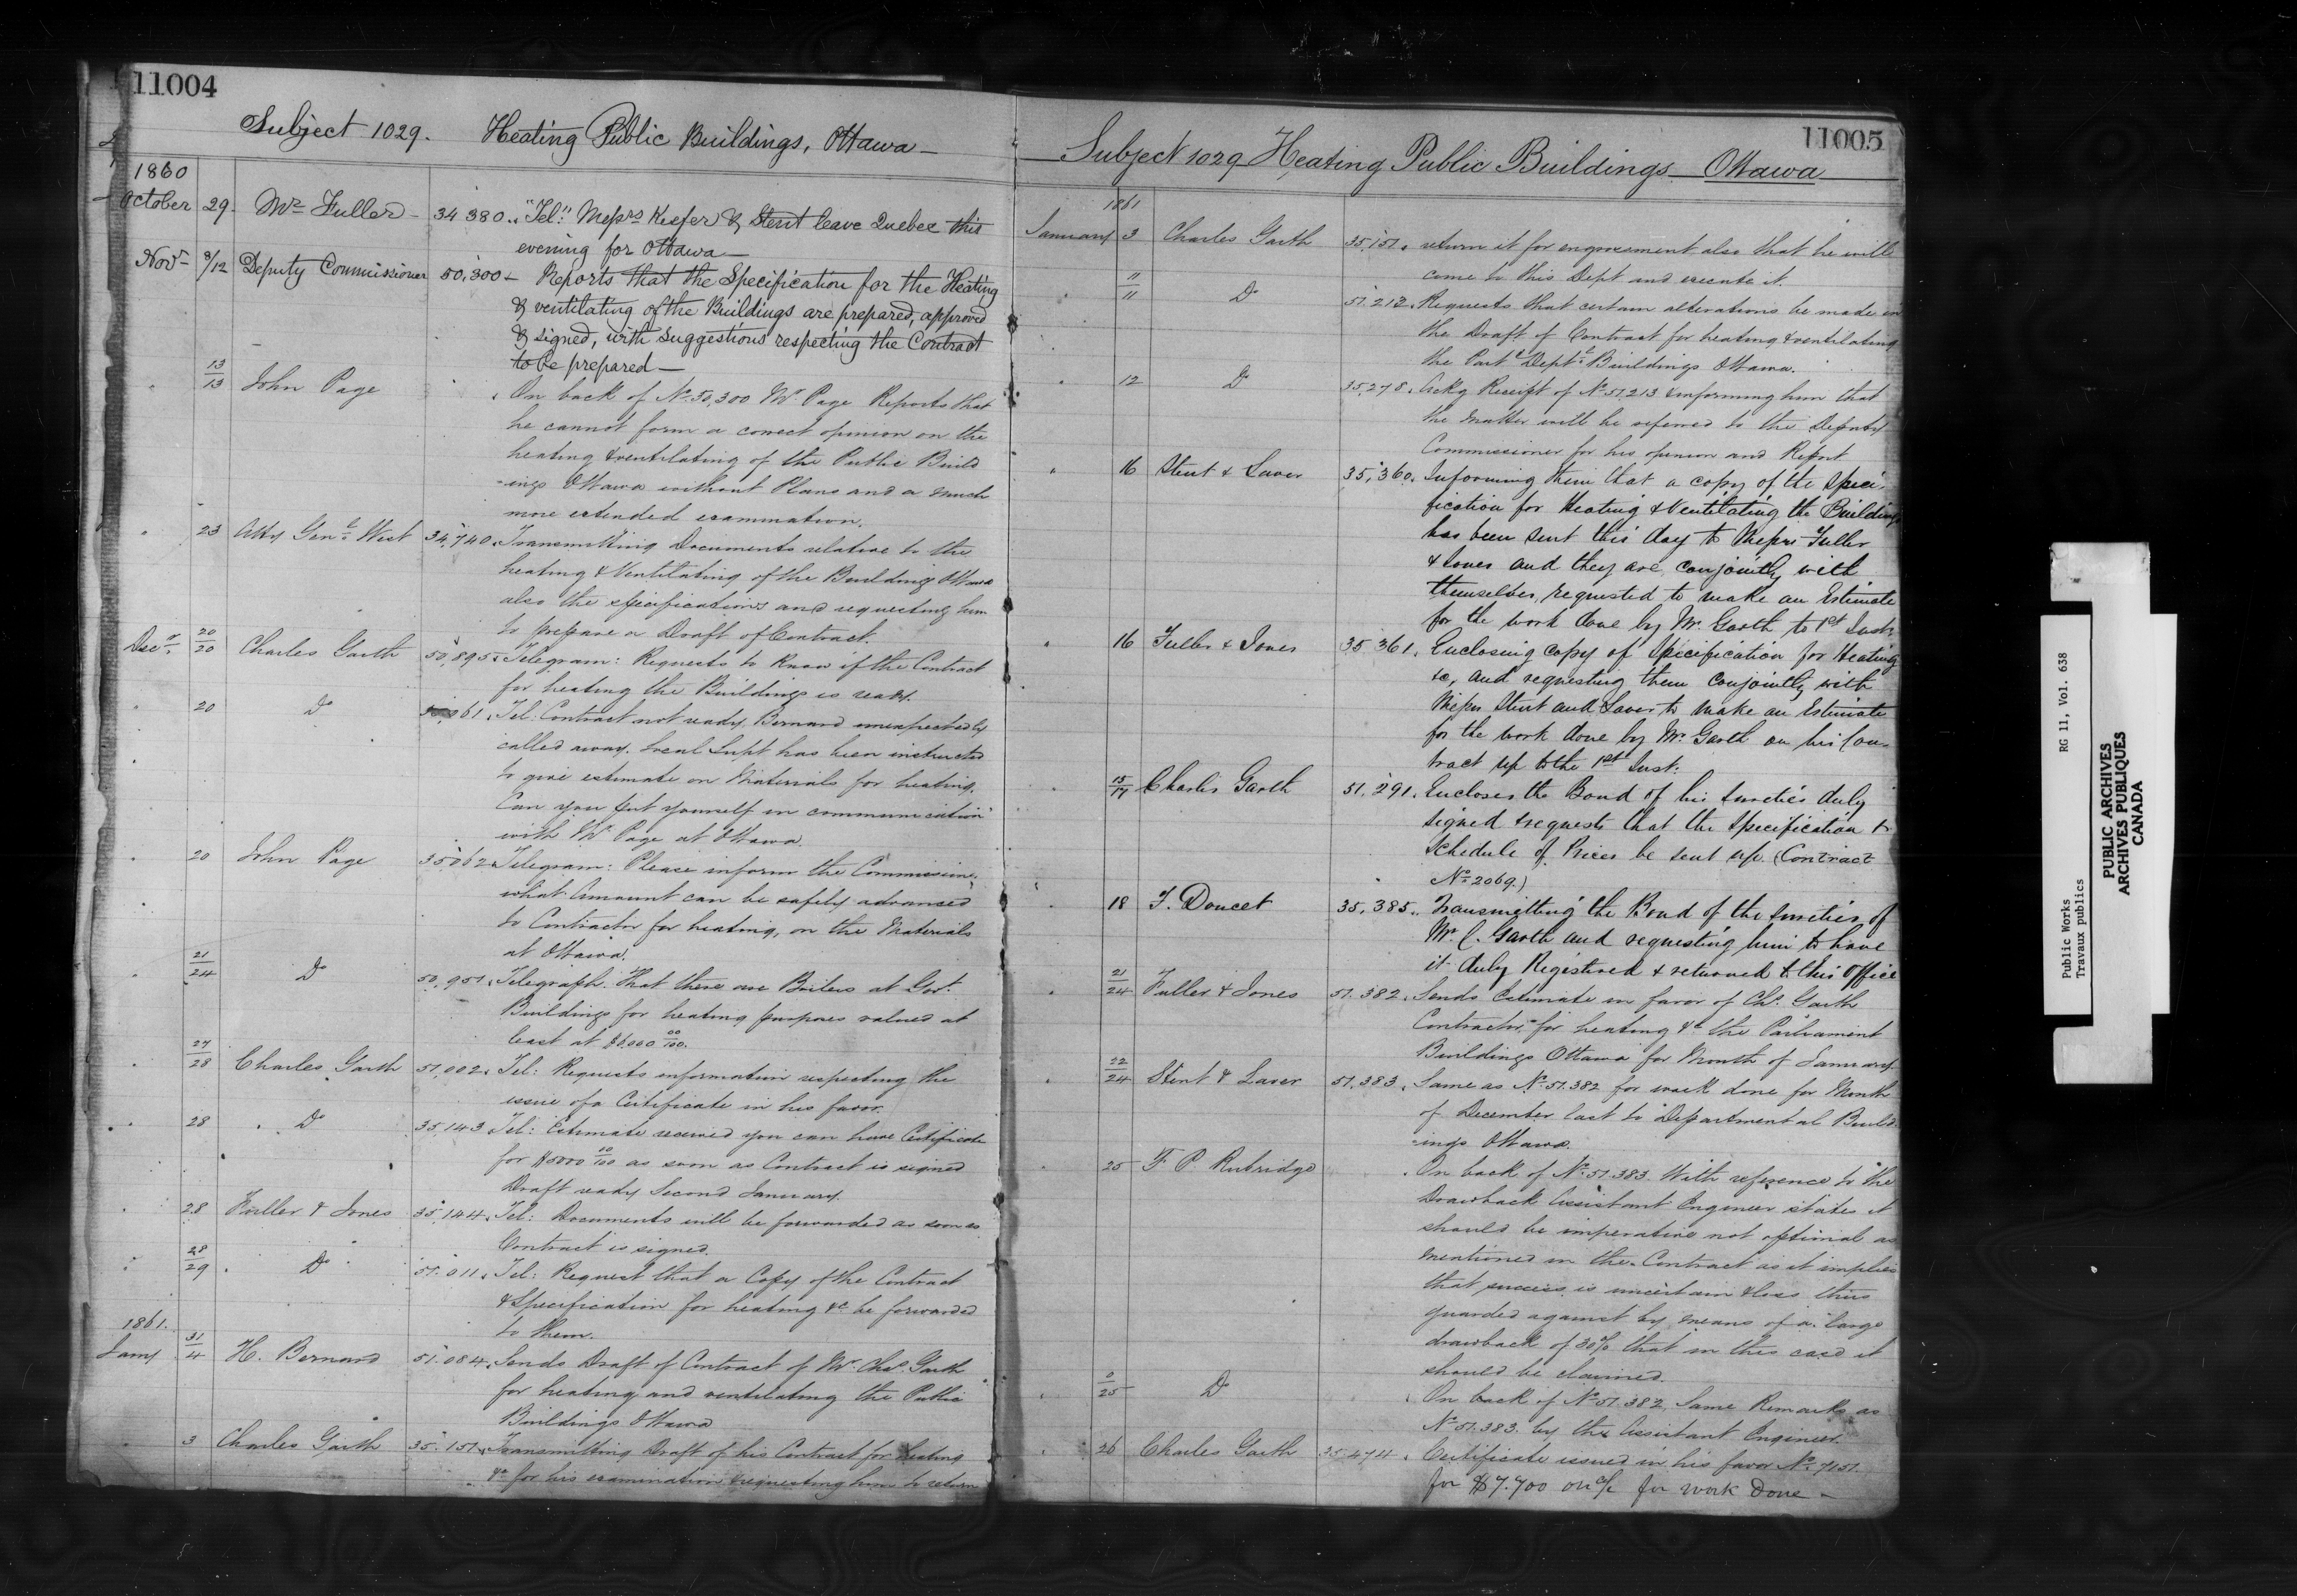 11004
Subject 1029. Heating Public Buildings, Ottawa
1860
October 29. Mr Fuller 34380. "Tel." Messrs Keefer & Stent leave Quebec this
evening for Ottawa
Novr 8/12 Deputy Commissioner 50,300 Reports that the Specification for the Heating
& ventilating of the Buildings are prepared, approved
& signed, with suggestions respecting the Contract
to be prepared
" 13/13 John Page " On back of No. 50,300 Mr Page Reports that
he cannot form a correct opinion on the
heating & ventilating of the Public Build
-ings Ottawa without Plans and a much
more extended examination.
" 23 Atty Genl West 34,740. Transmitting Documents relative to the
heating & Ventilating of the Buildings Ottawa
also the specifications and requesting him
to prepare a Draft of Contract.
Decr 20/20 Charles Garth 50,895. Telegram: Requests to know if the Contract
for heating the Buildings is ready.
" 20 Do 35,061. Tel: Contract not ready Bernard unexpectedly
called away. Local Supt has been instructed
to give estimate on Materials for heating.
Can you put yourself in communication
with Mr Page at Ottawa.
" 20 John Page 35062. Telegram: Please inform the Commissioner
what Amount can be safely advanced
to Contractor for heating, on the Materials
at Ottawa.
" 21/24 Do 50,951. Telegraph. That there are Boilers at Govt.
Buildings for heating purposes valued at
least at $6,000 00/100.
" 27/28 Charles Garth 51,002. Tel: Requests information respecting the
issue of a Certificate in his favor.
" 28 Do 35,143. Tel: Estimate received you can have Certificate
for $5000 00/100 as soon as Contract is signed
Draft ready Second January.
" 28 Fuller & Jones 35,144. Tel: Documents will be forwarded as soon as
Contract is signed.
" 28/29 Do 51.011. Tel: Request that a Copy of the Contract
& Specification for heating &c be forwarded
to them.
1861.
Jany 31/4 H. Bernard 51.084. Sends Draft of Contract of Mr Chas. Garth
for heating and ventilating the Public
Buildings Ottawa
" 3 Charles Garth 35.151. Transmitting Draft of his Contract for heating
&c for his examination & requesting him to return
11005
Subject 1029 Heating Public Buildings Ottawa
1861
January 3 Charles Garth 35,151. return it for engrossment also that he will
come to this Dept and execute it.
" 11/11 Do 51.213. Requests that certain alterations be made in
the Draft of Contract for heating & ventilating
the Part & Deptl Buildings Ottawa.
" 12 Do 35,278. Ackg Receipt of No 51,213 & informing him that
the matter will be referred to the Deputy
Commissioner for his opinion and Report
" 16 Stent & Laver 35,360. Informing them that a copy of the Speci-
fication for Heating & Ventilating the Buildings
has been sent this day to Messrs Fuller
& Jones and they are, conjointly with
themselves, requested to make an Estimate
for the work done by Mr. Garth to 1st Inst:
" 16 Fuller & Jones 35 361. Enclosing copy of Specification for Heating
&c, and requesting them conjointly with
Messrs Stent and Laver to make an Estimate
for the work done by Mr. Garth on his Con-
tract up to the 1st Inst:
" 15/17 Charles Garth 51.291. Encloses the Bond of his sureties duly
signed & requests that the specification &
schedule of Prices be sent up. (Contract
No 2069.)
" 18 F. Doucet 35,385. Transmitting the Bond of the sureties of
Mr. C. Garth and requesting him to have
it duly Registered & returned to this Office
" 21/24 Fuller & Jones 51.382. Sends Estimate in favor of Chs. Garth
Contractor for heating &c the Parliament
Buildings Ottawa for Month of January.
" 22/24 Stent & Laver 51.383. Same as No. 51.382 for work done for Month
of December last to Departmental Build-
-ings Ottawa.
" 25 F. P. Rubridge . On back of No. 51.383. With reference to the
Drawback Assistant Engineer states it
should be imperative not optional as
mentioned in the Contract as it implies
that success is uncertain & loss thus
guarded against by means of a large
drawback of 30% that in this case it
should be claimed.
" 0/25 Do On back of No 51.382, Same Remarks as
No 51.383. by the Assistant Engineer.
" 26 Charles Garth 35.474. Certificate issued in his favor No. 7151.
for $7.700 on a/c for work Done
Public Works RG 11, Vol. 638
Travaux publics
PUBLIC ARCHIVES
ARCHIVES PUBLIQUES
CANADA